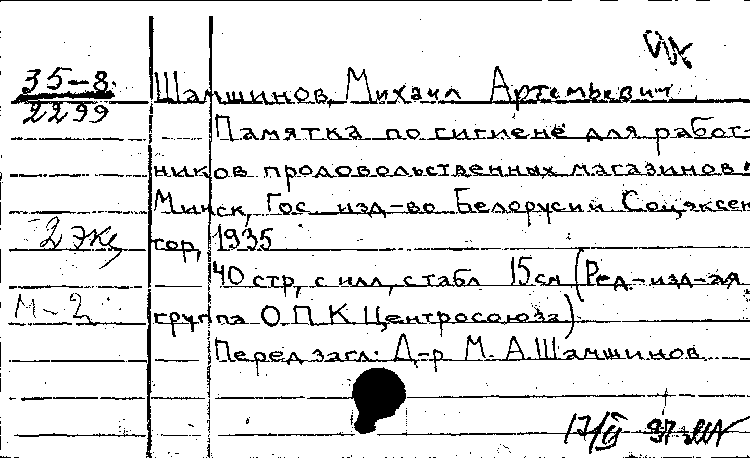 35-8
2299
Шамшинов, Михаил Артемьевич
Памятка по гигиене для работ-
ников продовольственных магазинов
Минск, Гос. изд-во Белорусии Соцяксен-
2 экз
тор, 1935
40 стр, с илл, с табл 15 см (Ред-изд-ая
М-2
группа О.П.К. Центросоюза)
Перед загл: Д-р М. А. Шамшинов
17/II 37